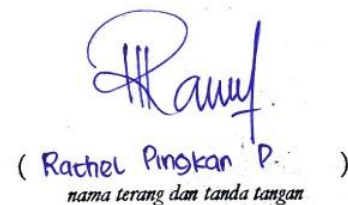 ( Rachel Pingkan P. )
nama terang dan tanda tangan